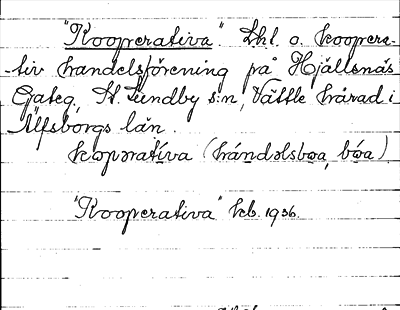 "Kooperativa". Lkl. o. koopera-
-tiv handelsförening på Hjällsnäs
Gateg., St. Lundby s:n, Vättle härad i
Älfsborgs län.
kopəratíva (hándəlsbωa, bωa)
"Kooperativa" kb. 1936.